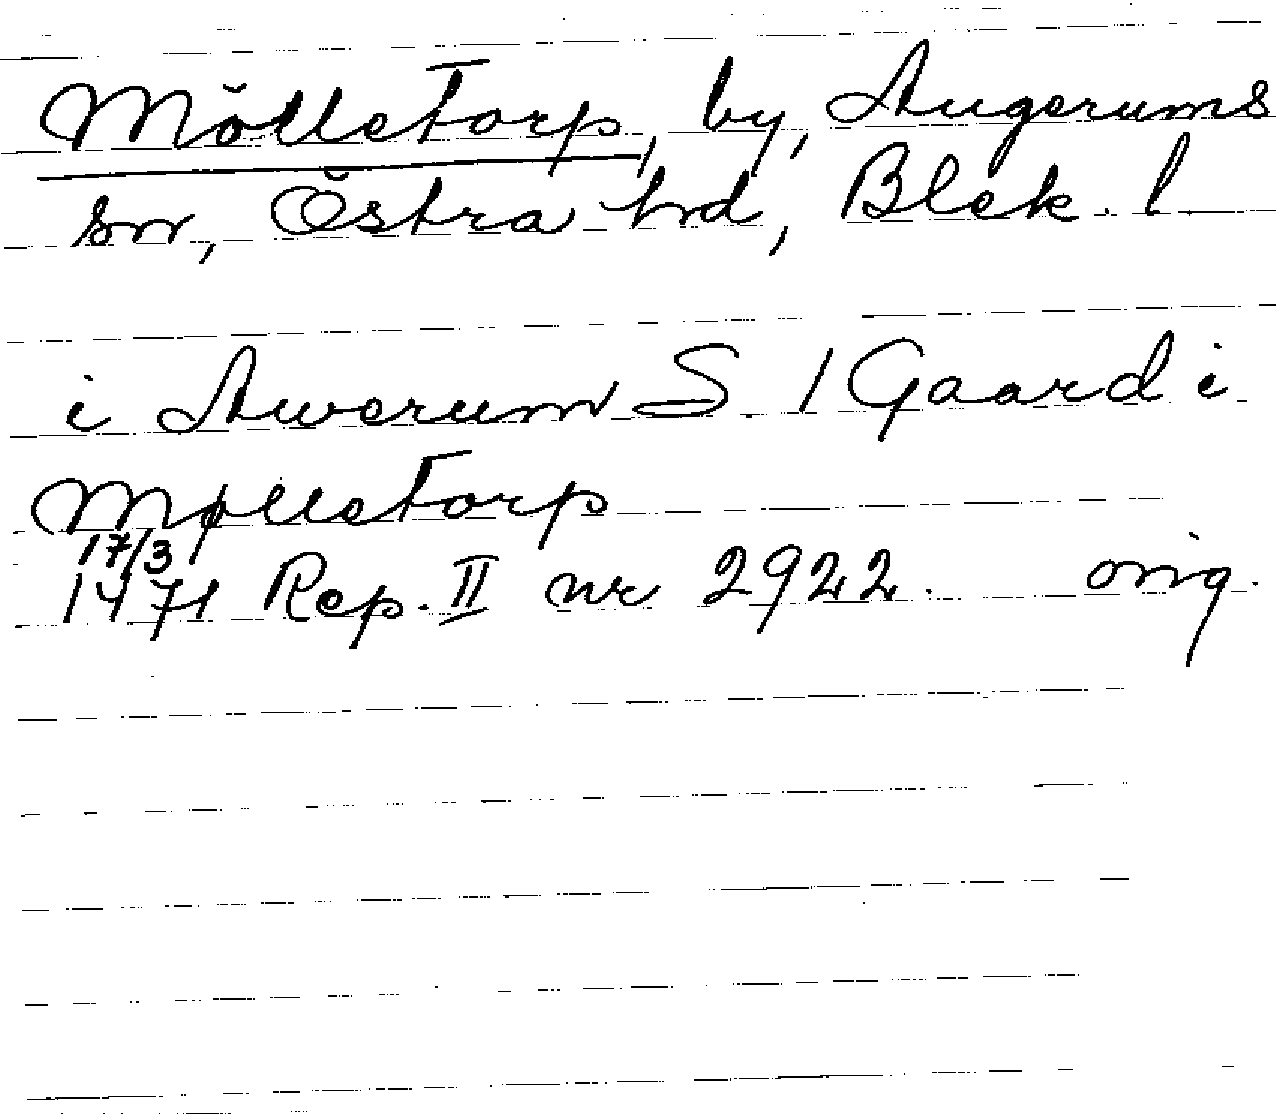 Mölletorp, by, Augerums
sn, Östra hd, Blek. l
i Awerum S. 1 Gaard i
Mølletorp
17/3
1471 Rep. II nr 2922. orig.